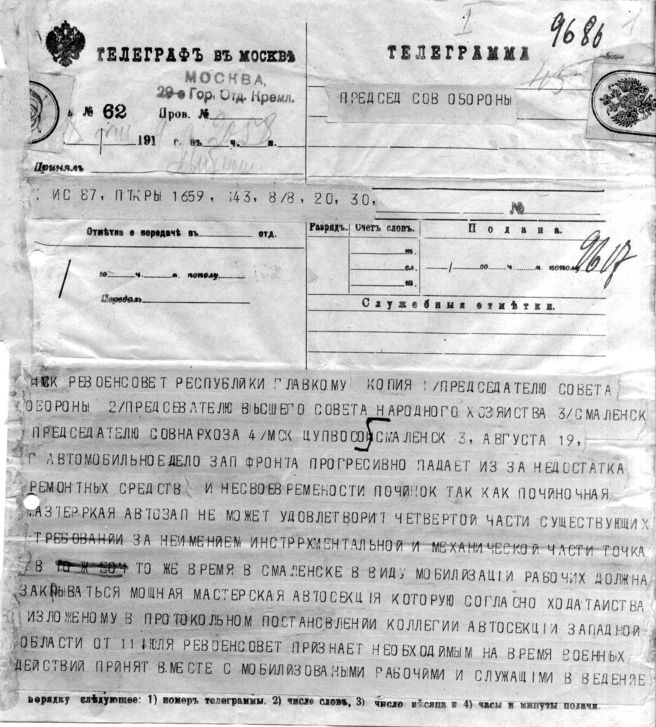 ТЕЛЕГРАФЪ ВЪ МОСКВѢ
ТЕЛЕГРАММА
9686
МОСКВА,
29-е Гор. Отд. Кремл.
№ 62 Пров. №
191 г. въ ч. м.
Принялъ
ПРЕДСЕД СОВ ОБОРОНЫ
ИС 87, ПТКРЫ 1659, 143, 8/8, 20, 30,
№
Отмѣтка о передачѣ въ отд.
го ч. м. пополу
Передалъ
Разрядъ.
Счетъ словъ.
Подана.
го ч. м. пополу
9617
Служебныя отмѣтки.
МСК РЕВОЕНСОВЕТ РЕСПУБЛИКИ ГЛАВКОМУ КОПИЯ 1/ПРЕДСЕДАТЕЛЮ СОВЕТА
ОБОРОНЫ 2/ПРЕДСЕВАТЕЛЮ ВЫСШЕГО СОВЕТА НАРОДНОГО ХОЗЯИСТВА 3/СМАЛЕНСК
ПРЕДСЕДАТЕЛЮ СОВНАРХОЗА 4/МСК ЦУПВОСО СМАЛЕНСК 3, АВГУСТА 19,
Г АВТОМОБИЛЬНОЕ ДЕЛО ЗАП ФРОНТА ПРОГРЕСИВНО ПАДАЕТ ИЗ ЗА НЕДОСТАТКА
РЕМОНТНЫХ СРЕДСТВ И НЕСВОЕВРЕМЕНОСТИ ПОЧИНОК ТАК КАК ПОЧИНОЧНАЯ
МАЗТЕРРКАЯ АВТОЗАП НЕ МОЖЕТ УДОВЛЕТВОРИТ ЧЕТВЕРТОЙ ЧАСТИ СУЩЕСТВУЮЩИХ
ТРЕБОВАНИИ ЗА НЕИМЕНИЕМ ИНСТРРХМЕНТАЛЬНОЙ И МЕХАНИЧЕСКОЙ ЧАСТИ ТОЧКА
В ТО ЖЕ ВРЕМЯ В СМАЛЕНСКЕ В ВИДУ МОБИЛИЗАЦІИ РАБОЧИХ ДОЛЖНА
ЗАКРЫВАТЬСЯ МОЩНАЯ МАСТЕРСКАЯ АВТОСЕКЦІЯ КОТОРУЮ СОГЛАСНО ХОДАТАИСТВА
ИЗЛОЖЕНОМУ В ПРОТОКОЛЬНОМ ПОСТАНОВЛЕНИИ КОЛЛЕГИИ АВТОСЕКЦІИ ЗАПАДНОЙ
ОБЛАСТИ ОТ 11 ИЮЛЯ РЕВОЕНСОВЕТ ПРИЗНАЕТ НЕОБХОДИМЫМ НА ВРЕМЯ ВОЕННЫХ
ДЕЙСТВИЙ ПРИНЯТ ВМЕСТЕ С МОБИЛИЗОВАНЫМИ РАБОЧИМИ И СЛУЖАЩІМИ В ВЕДЕНИЕ
порядку слѣдующее: 1) номеръ телеграммы. 2) число словъ, 3) число мѣсяца и 4) часы и минуты подачи.